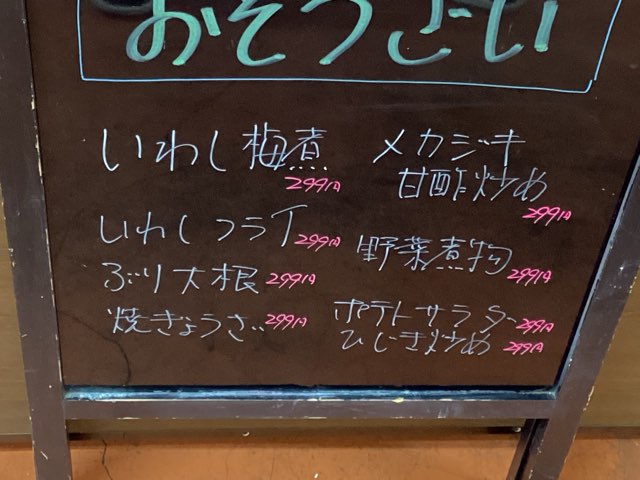 おそうざい
いわし梅煮
299円
いわしフライ 299円
ぶり大根 299円
焼ぎょうざ 299円
メカジキ
甘酢炒め
299円
野菜煮物
299円
ポテトサラダ 299円
ひじき炒め 299円